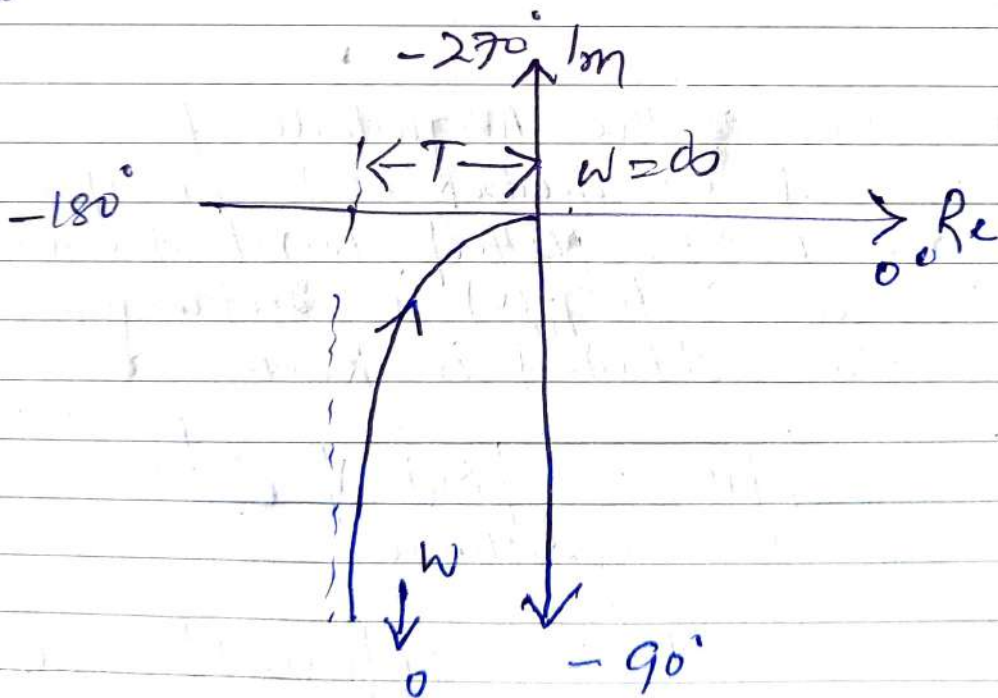 -270° Im
←T→ w=∞
-180°
Re
0°
w
↓
0
-90°